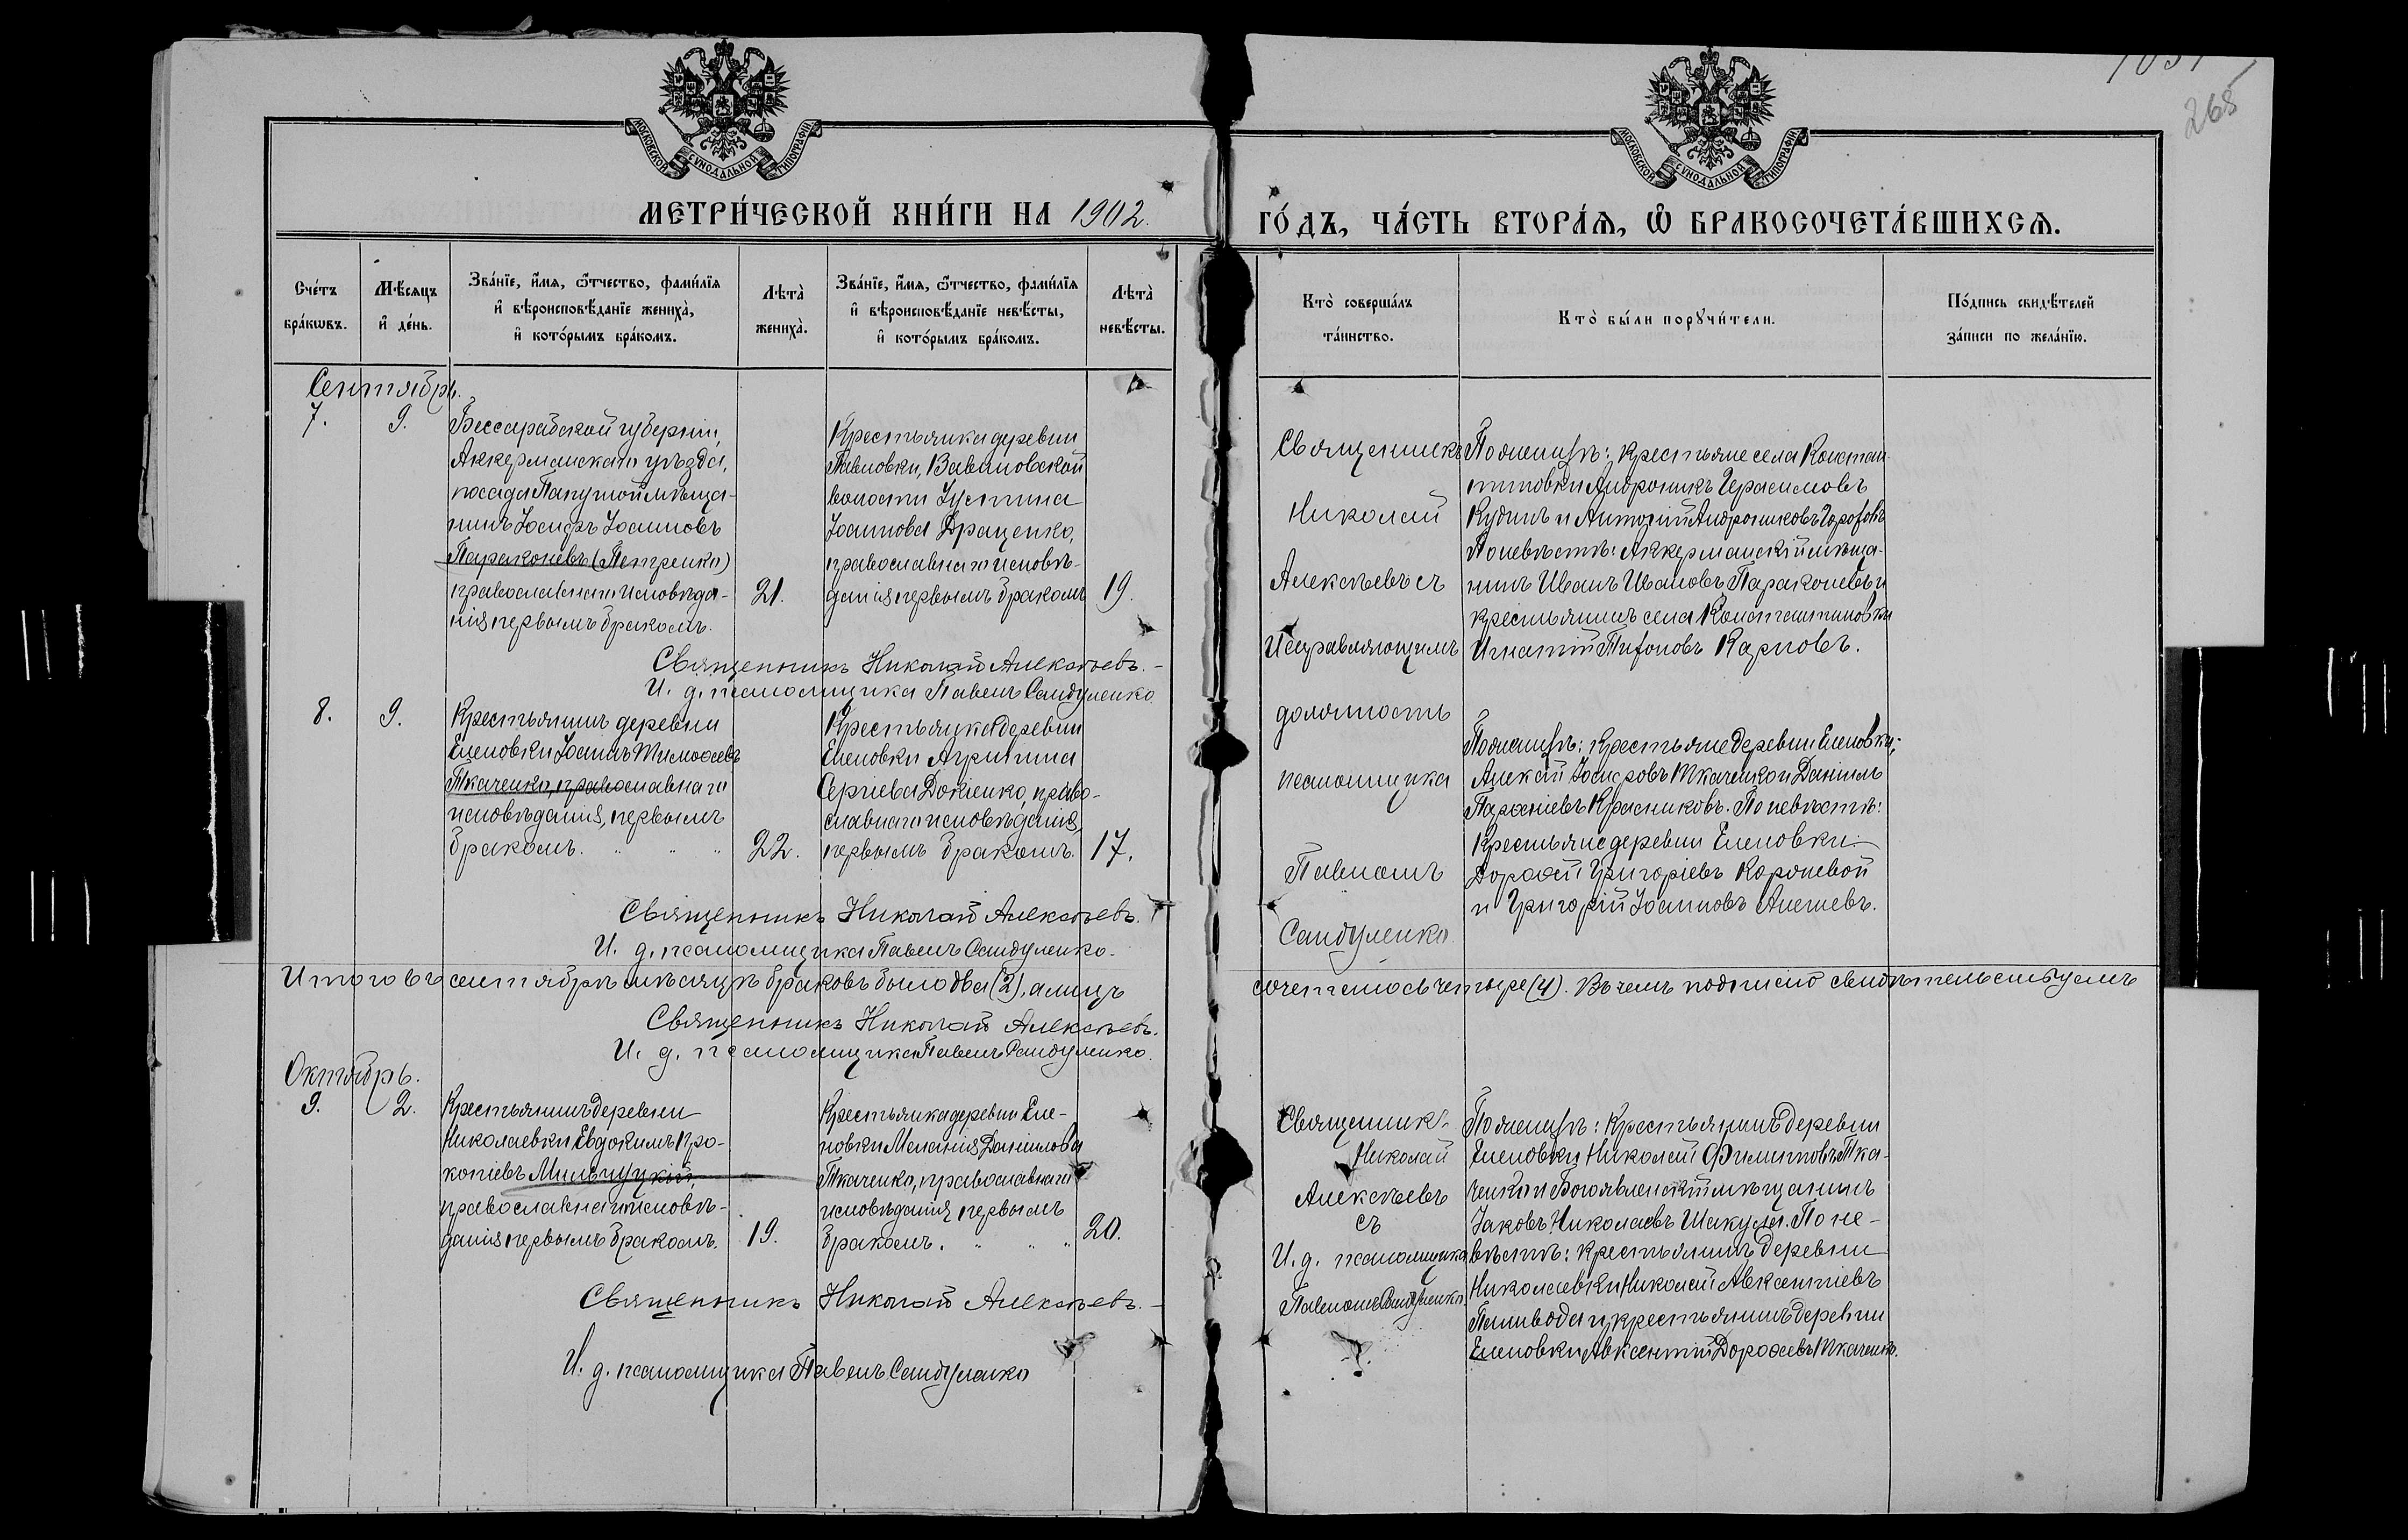 1031
265
МОСКОВСКОЙ СѴНОДАЛЬНОЙ ТИПОГРАФІИ
МОСКОВСКОЙ СѴНОДАЛЬНОЙ ТИПОГРАФІИ
МЕТРИ́ЧЕСКОЙ КНИ́ГИ НА 1902.
ГО́ДЪ, ЧА́СТЬ ВТОРА́Ѧ, Ѡ҆ БРАКОСОЧЕТА́ВШИХСѦ.
Сче́тъ бра́кѡвъ.
Мѣ́сяцъ и҆ де́нь.
Зва́нїе, и҆́мѧ, ѻ҆́тчество, фами́лїѧ и҆ вѣроисповѣ́данїе жениха̀, и҆ кото́рымъ бра́комъ.
Лѣта̀ жениха̀.
Зва́нїе, и҆́мѧ, ѻ҆́тчество, фами́лїѧ и҆ вѣроисповѣ́данїе невѣ́сты, и҆ кото́рымъ бра́комъ.
Лѣта̀ невѣ́сты.
Кто̀ соверша́лъ та́инство.
Кто̀ бы́ли порꙋчи́тели.
По́дпись свидѣ́телей за́писи по жела́нїю.
Сентябрь.
7.
9.
Бессарабской губерніи,
Аккерманскаго уѣзда,
посада Папушой мѣща-
нинъ Іосифъ Іоанновъ
Параконевъ (Петренко)
православнаго исповѣда-
нія первымъ бракомъ.
21.
Крестьянка деревни
Павловки, Вавиловской
волости Іустина
Іоаннова Драценко,
православнаго исповѣ-
данія первымъ бракомъ
19.
Священникъ
Николай
Алексѣевъ съ
Исправляющимъ
должность
псаломщика
Павломъ
Сандуленко
По женихѣ: крестьяне села Констан-
тиновки Андроникъ Герасимовъ
Кудинъ и Антоній Андрониковъ
По невѣстѣ: Аккерманскій мѣща-
нинъ Иванъ Ивановъ Параконевъ и
крестьянинъ села Константиновки
Игнатій Тифоновъ Карповъ.
Священникъ Николай Алексѣевъ.
И. д. псаломщика Павелъ Сандуленко
8.
9.
Крестьянинъ деревни
Еленовки Іоаннъ Тимоѳеевъ
Ткаченко, православнаго
исповѣданія, первымъ
бракомъ. " " "
22.
Крестьянка деревни
Еленовки Агрипина
Сергіева Докіенко, право-
славнаго исповѣданія,
первымъ бракомъ.
17.
По женихѣ: крестьяне деревни Еленовки:
Алексій Іосифовъ Ткаченко и Даніилъ
Парѳеніевъ Красниковъ. По невѣстѣ:
Крестьяне деревни Еленовки:
Дороѳей Григоріевъ Короневой
и Григорій Іоанновъ Алешевъ.
Священникъ Николай Алексѣевъ.
И. д. псаломщика Павелъ Сандуленко.
Итого въ сентябрѣ мѣсяцѣ браковъ было два (2), а лицъ
сочеталось четыре (4). Въ чемъ подписью свидѣтельствуемъ
Священникъ Николай Алексѣевъ.
И. д. псаломщика Павелъ Сандуленко.
Октябрь.
9.
2.
Крестьянинъ деревни
Николаевки Евдокимъ Про-
копіевъ Мильчуцкій,
православнаго исповѣ-
данія первымъ бракомъ.
19.
Крестьянка деревни Еле-
новки Меланія Даніилова
Ткаченко, православнаго
исповѣданія первымъ
бракомъ. " " "
20.
Священникъ
Николай
Алексѣевъ
съ
И. д. псаломщика
Павломъ Сандуленко
По женихѣ: Крестьянинъ деревни
Еленовки Николай Филиповъ Тка-
ченко и Богоявленскій мѣщанинъ
Іаковъ Николаевъ Шакула. По не-
вѣстѣ: крестьянинъ деревни
Николаевки Николай Авксентіевъ
Паливода и крестьянинъ деревни
Еленовки Авксентій Дороѳеевъ Ткаченко.
Священникъ Николай Алексѣевъ.
И. д. псаломщика Павелъ Сандуленко